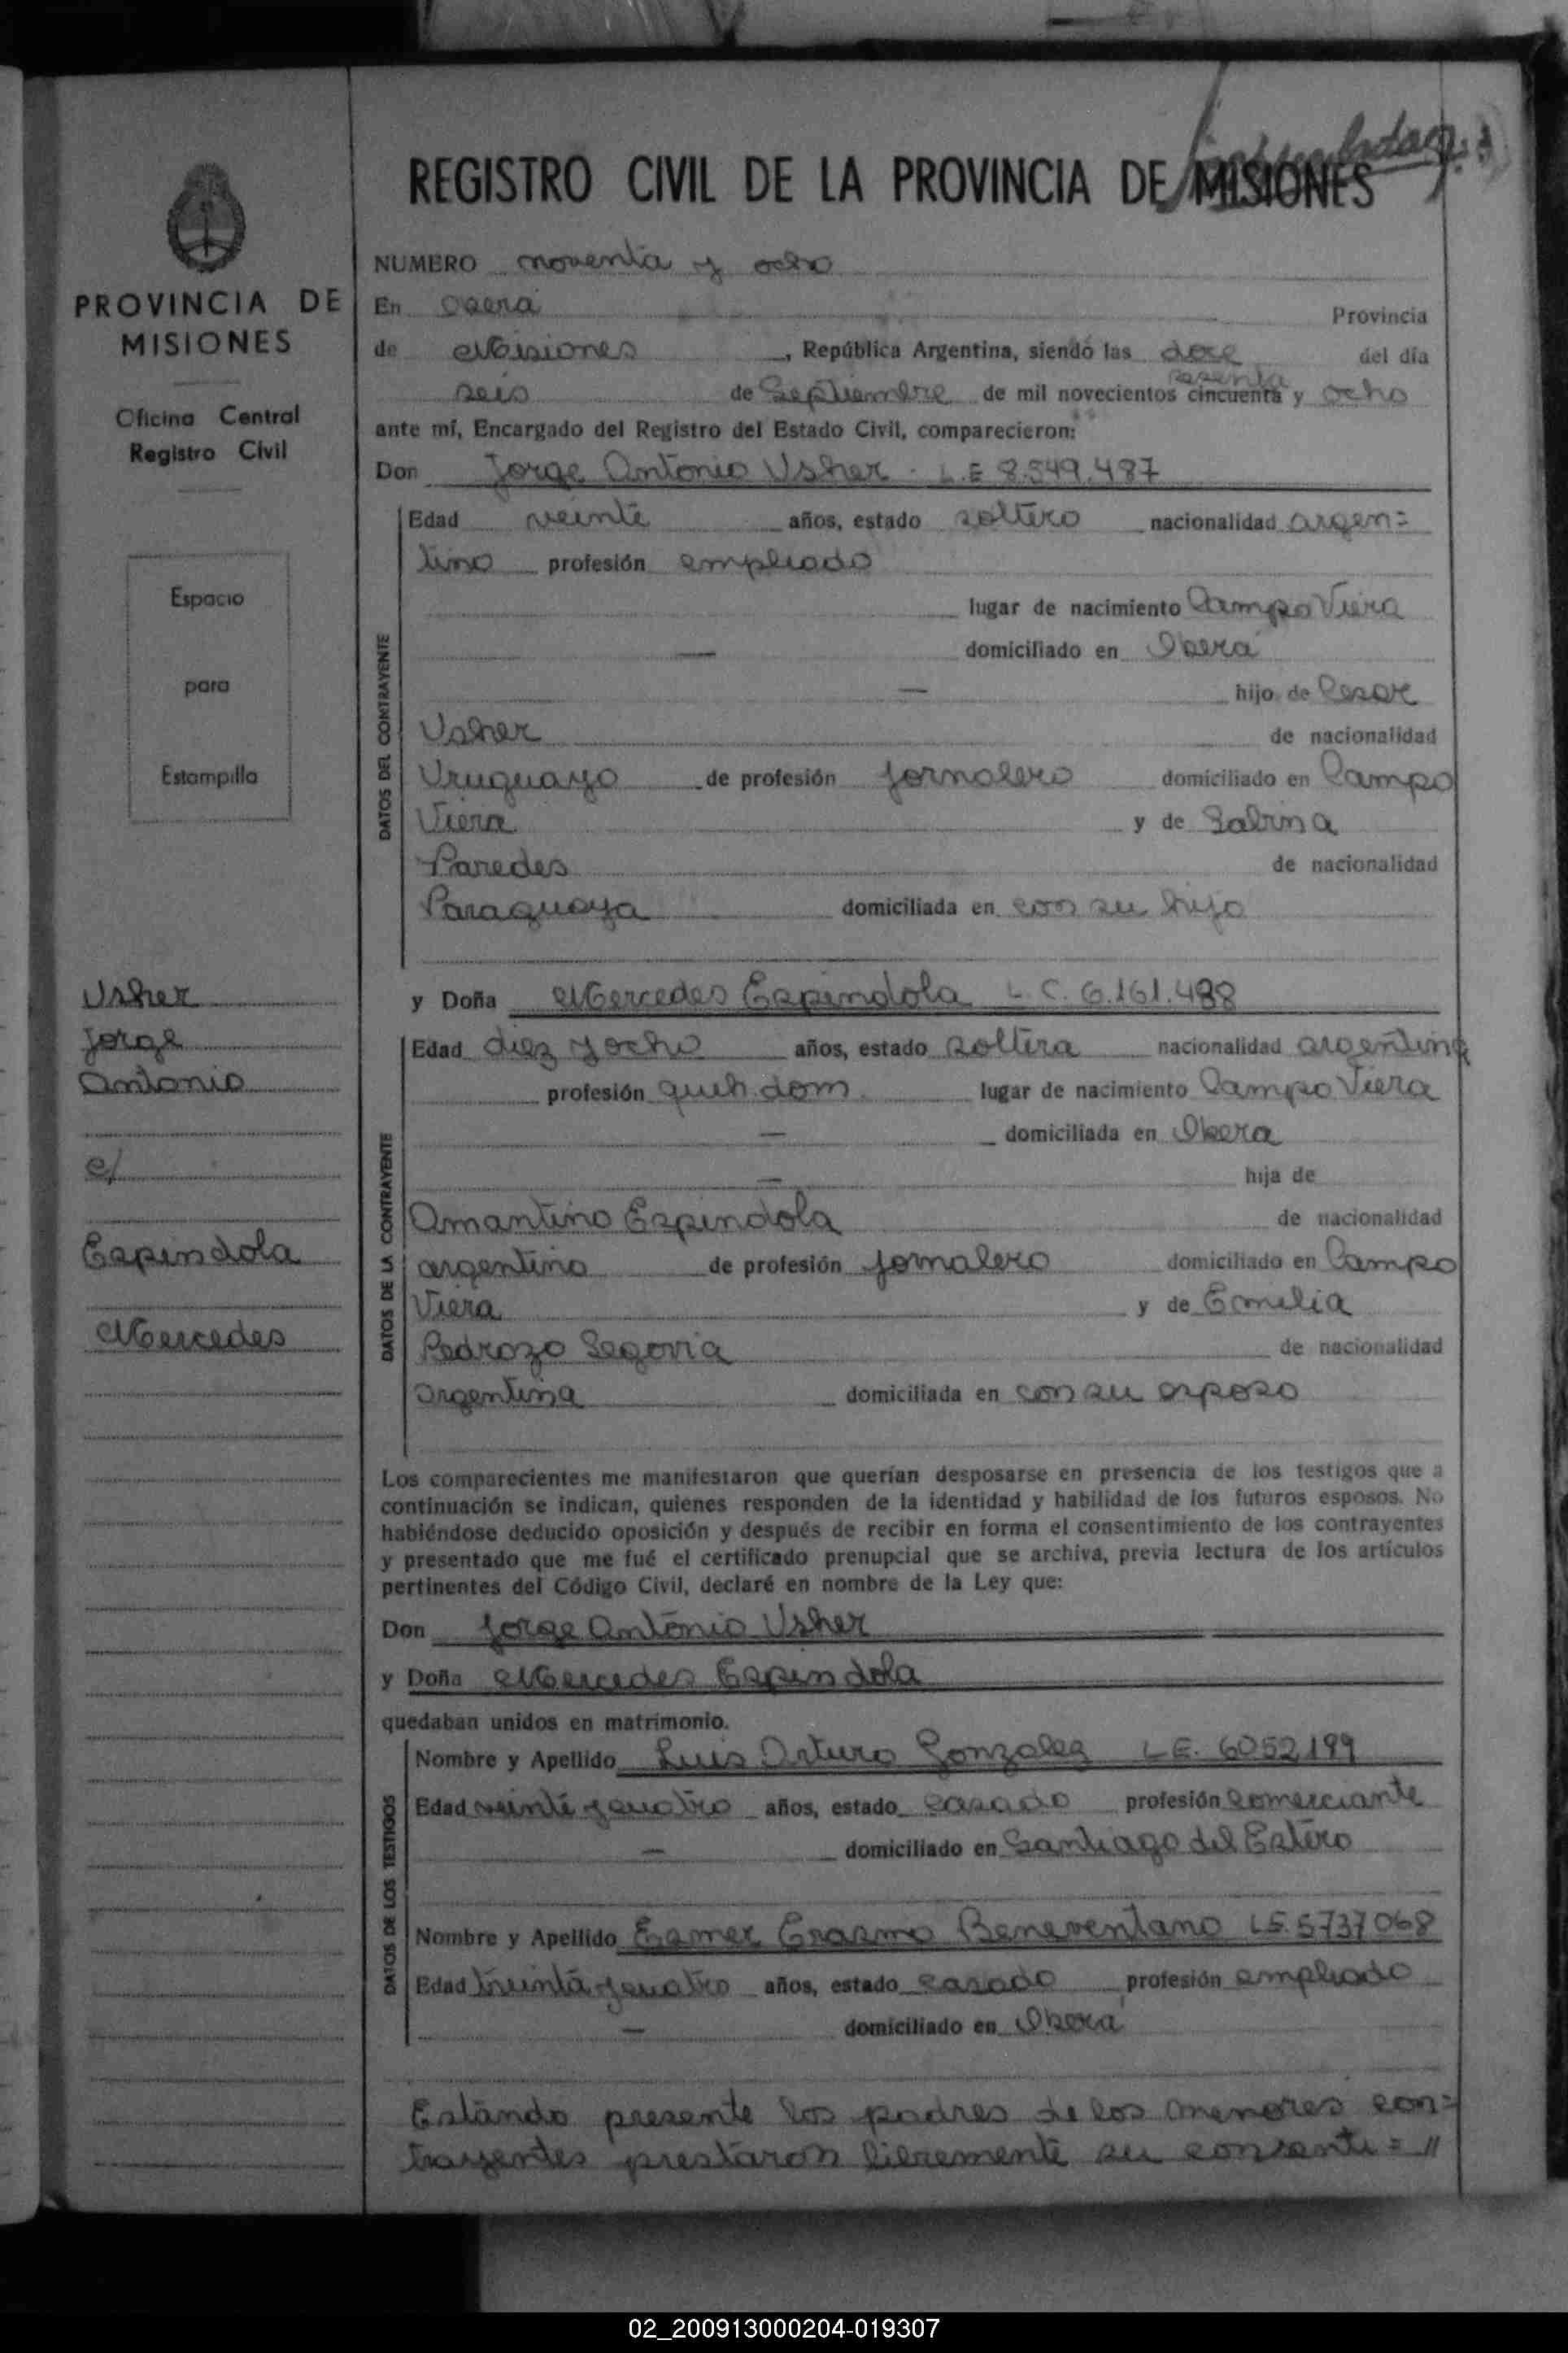 REGISTRO CIVIL DE LA PROVINCIA DE MISIONES
PROVINCIA DE
MISIONES
Oficina Central
Registro Civil
Espacio
para
Estampilla
Usher
Jorge
Antonio
c/
Espindola
Mercedes
NUMERO noventa y ocho
En Oberá Provincia
de Misiones, República Argentina, siendo las doce del día
sesenta
seis de Septiembre de mil novecientos cincuenta y ocho
ante mí, Encargado del Registro del Estado Civil, comparecieron:
Don Jorge Antonio Usher - L.E 8.549.487
DATOS DEL CONTRAYENTE
Edad veinte años, estado soltero nacionalidad argen=
tino profesión empleado
lugar de nacimiento Campo Viera
— domiciliado en Oberá
— hijo de Cesar
Usher de nacionalidad
Uruguayo de profesión jornalero domiciliado en Campo
Viera y de Sabina
Paredes de nacionalidad
Paraguaya domiciliada en con su hijo
y Doña Mercedes Espindola L.C. 6.161.488
DATOS DE LA CONTRAYENTE
Edad diez y ocho años, estado soltera nacionalidad argentina
profesión queh. dom. lugar de nacimiento Campo Viera
— domiciliada en Obera
— hija de
Amantino Espindola de nacionalidad
argentino de profesión jornalero domiciliado en Campo
Viera y de Emilia
Pedrozo Segovia de nacionalidad
Argentina domiciliada en con su esposo
Los comparecientes me manifestaron que querían desposarse en presencia de los testigos que a
continuación se indican, quienes responden de la identidad y habilidad de los futuros esposos. No
habiéndose deducido oposición y después de recibir en forma el consentimiento de los contrayentes
y presentado que me fué el certificado prenupcial que se archiva, previa lectura de los artículos
pertinentes del Código Civil, declaré en nombre de la Ley que:
Don Jorge Antonio Usher
y Doña Mercedes Espindola
quedaban unidos en matrimonio.
DATOS DE LOS TESTIGOS
Nombre y Apellido Luis Arturo Gonzalez L.E. 6052199
Edad veinte y cuatro años, estado casado profesión comerciante
— domiciliado en Santiago del Estero
Nombre y Apellido Esmer Erasmo Beneventano L.E. 5737068
Edad treinta y cuatro años, estado casado profesión empleado
— domiciliado en Oberá
Estando presente los padres de los menores con=
trayentes prestaron libremente su consenti= //
02_200913000204-019307